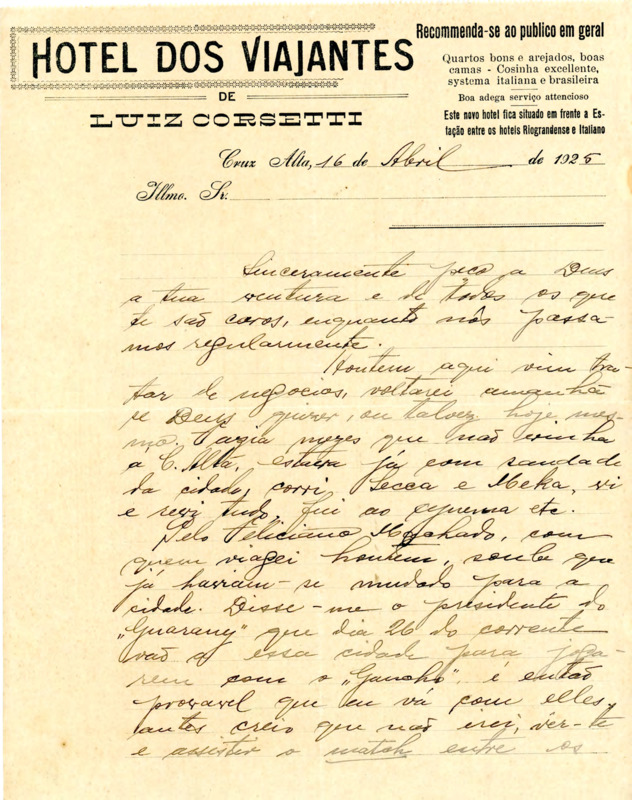 HOTEL DOS VIAJANTES
DE
LUIZ CORSETTI
Recommenda-se ao publico em geral
Quartos bons e arejados, boas
camas - Cosinha excellente,
systema italiana e brasileira
Boa adega serviço attencioso
Este novo hotel fica situado em frente a Es-
tação entre os hoteis Riograndense e Italiano
Cruz Alta, 16 de Abril de 1925
Illmo. Sr.
Sinceramente peço a Deus
a tua ventura e de todos os que
te são caros, enquanto nós passa-
mos regularmente.
Hontem aqui vim tra-
tar de negocios, voltarei amanhã
se Deus quizer, ou talvez hoje mes-
mo. Fazia mezes que não vinha
a C. Alta, estava já com saudade
da cidade, corri Secca e Meka, vi
e revi tudo, fui ao cynema etc.
Pelo Feliciano Machado, com
quem viagei hontem, soube que
já haviam-se mudado para a
cidade. Disse-me o presidente do
"Guarany" que dia 26 do corrente
vão a essa cidade para joga-
rem com o "Gaucho", é então
provavel que eu vá com elles,
antes creio que não irei, ver-te
e assistir o match entre os